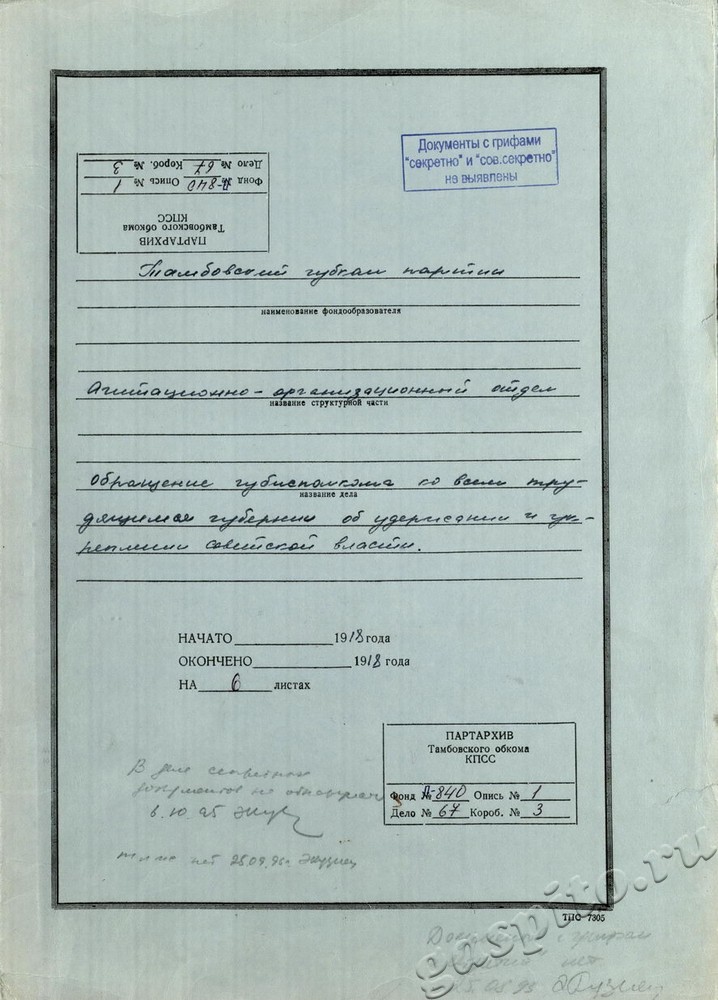 Документы с грифами
"секретно" и "сов.секретно"
не выявлены
ПАРТАРХИВ
Тамбовского обкома
КПСС
Фонд № П-840 Опись № 1
Дело № 67 Короб. № 3
Тамбовский губком партии
наименование фондообразователя
Агитационно-организационный отдел
название структурной части
Обращение губисполкома ко всем тру-
название дела
дящимся губернии об удержании и ук-
реплении советской власти.
НАЧАТО 1918 года
ОКОНЧЕНО 1918 года
НА 6 листах
ПАРТАРХИВ
Тамбовского обкома
КПСС
Фонд № П-840 Опись № 1
Дело № 67 Короб. № 3
В деле секретных
документов не обнаружено
6.10.95
нет 25.09.95г.
ТПС-7305
Документов с грифом
нет
gaspito.ru